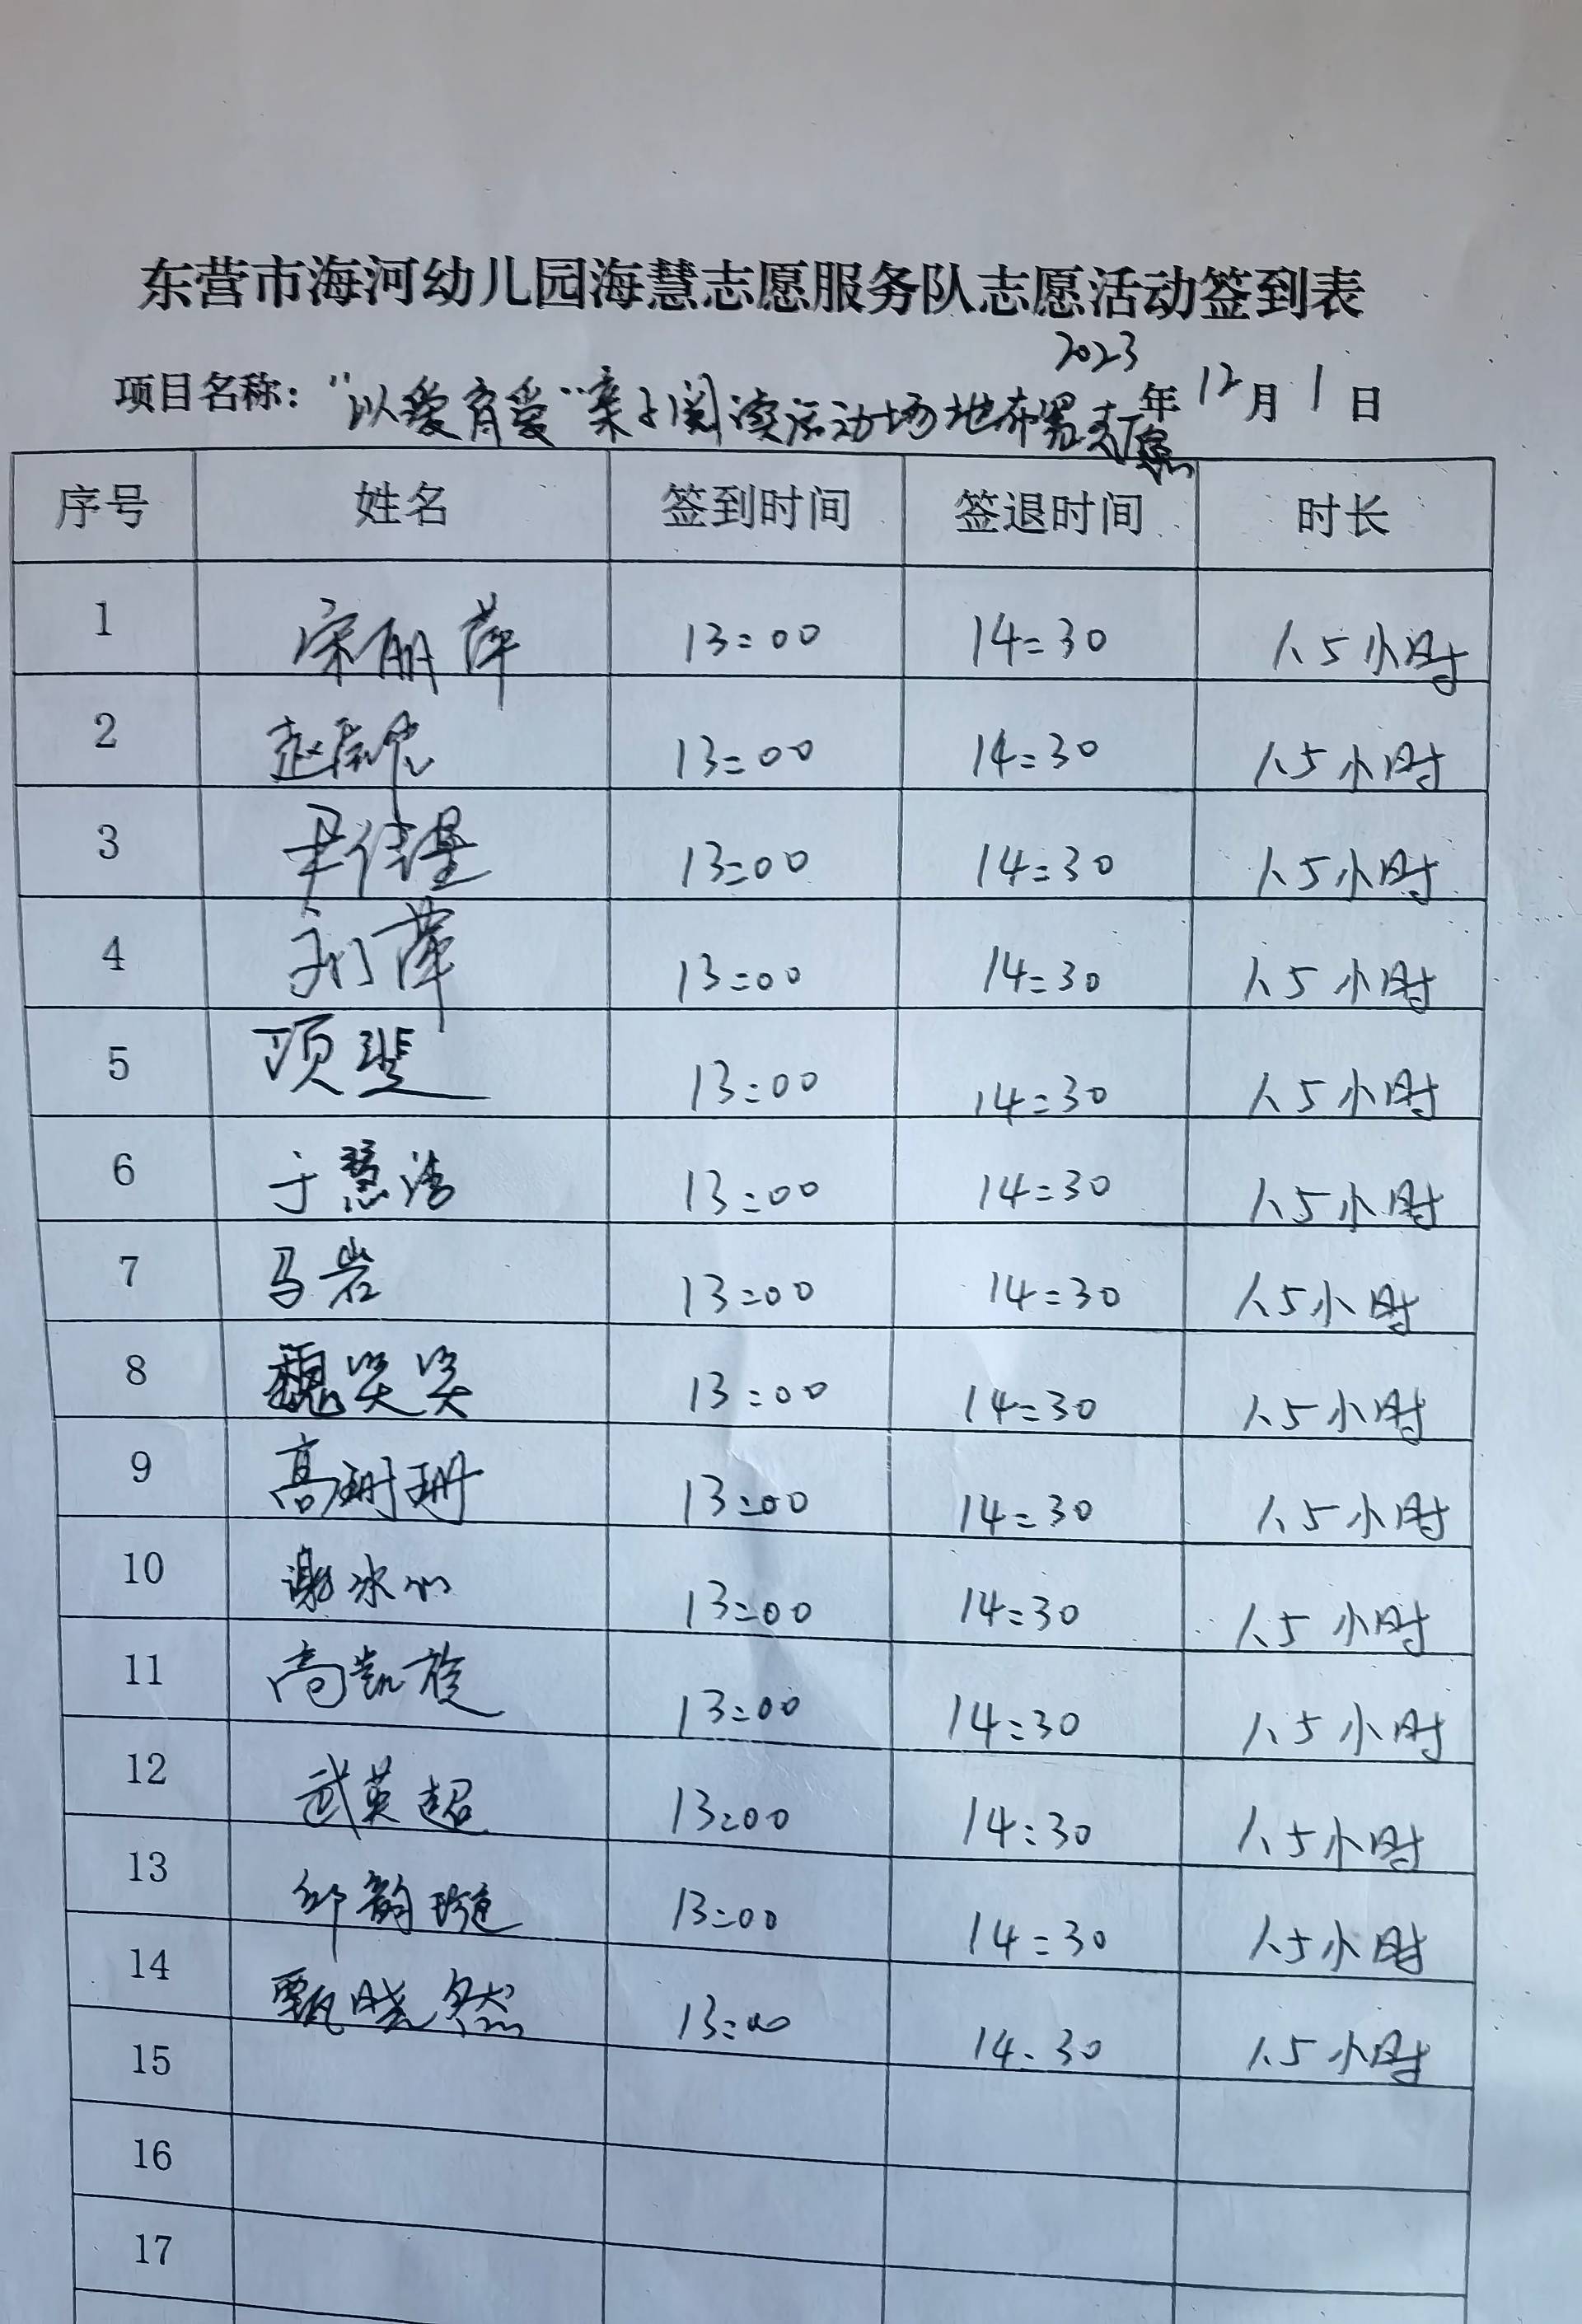 东营市海河幼儿园海慧志愿服务队志愿活动签到表
项目名称：“以爱育爱”亲子阅读活动场地布置志愿 2023年12月1日
序号 姓名 签到时间 签退时间 时长
1 宋丽萍 13:00 14:30 1.5小时
2 赵 13:00 14:30 1.5小时
3 尹佳 13:00 14:30 1.5小时
4 孙萍 13:00 14:30 1.5小时
5 项斐 13:00 14:30 1.5小时
6 于慧洁 13:00 14:30 1.5小时
7 马岩 13:00 14:30 1.5小时
8 魏笑笑 13:00 14:30 1.5小时
9 高珊珊 13:00 14:30 1.5小时
10 谢冰心 13:00 14:30 1.5小时
11 高凯旋 13:00 14:30 1.5小时
12 武英超 13:00 14:30 1.5小时
13 邹韵璇 13:00 14:30 1.5小时
14 甄晓然 13:00 14:30 1.5小时
15
16
17